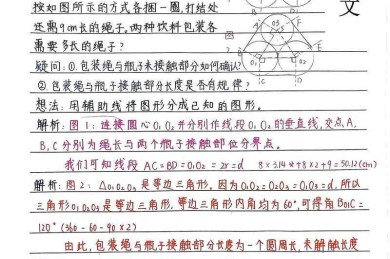 按如图所示的方式各捆一圈,打结处
还需9cm长的绳子,两种饮料包装各
需要多长的绳子?
文
疑问:①包装绳与瓶子未接触部分如何确认?
②包装绳与瓶子接触部分长度是否有规律?
想法:用辅助线将图形分成已知的图形。
解析:图1:连接圆心O₁O₂并分别作线段O₁O₂的垂直线,交点A,
B,C分别为绳长与两个瓶子接触部位分界点。
我们可知线段 AC=BD=O₁O₂=2r=d 8×3.14×+8×2+9=50.12(cm)
解析:图2:△O₁O₂O₃是等边三角形。因为O₁O₂=O₂O₃=O₁O₃=d,所以
三角形O₁O₂O₃是等边三角形,等边三角形内角均为60°,可得角BO₁C=
120°(360-60-90×2)
由此,包装绳与瓶子接触部分长度为一个圆周长,未解触长度